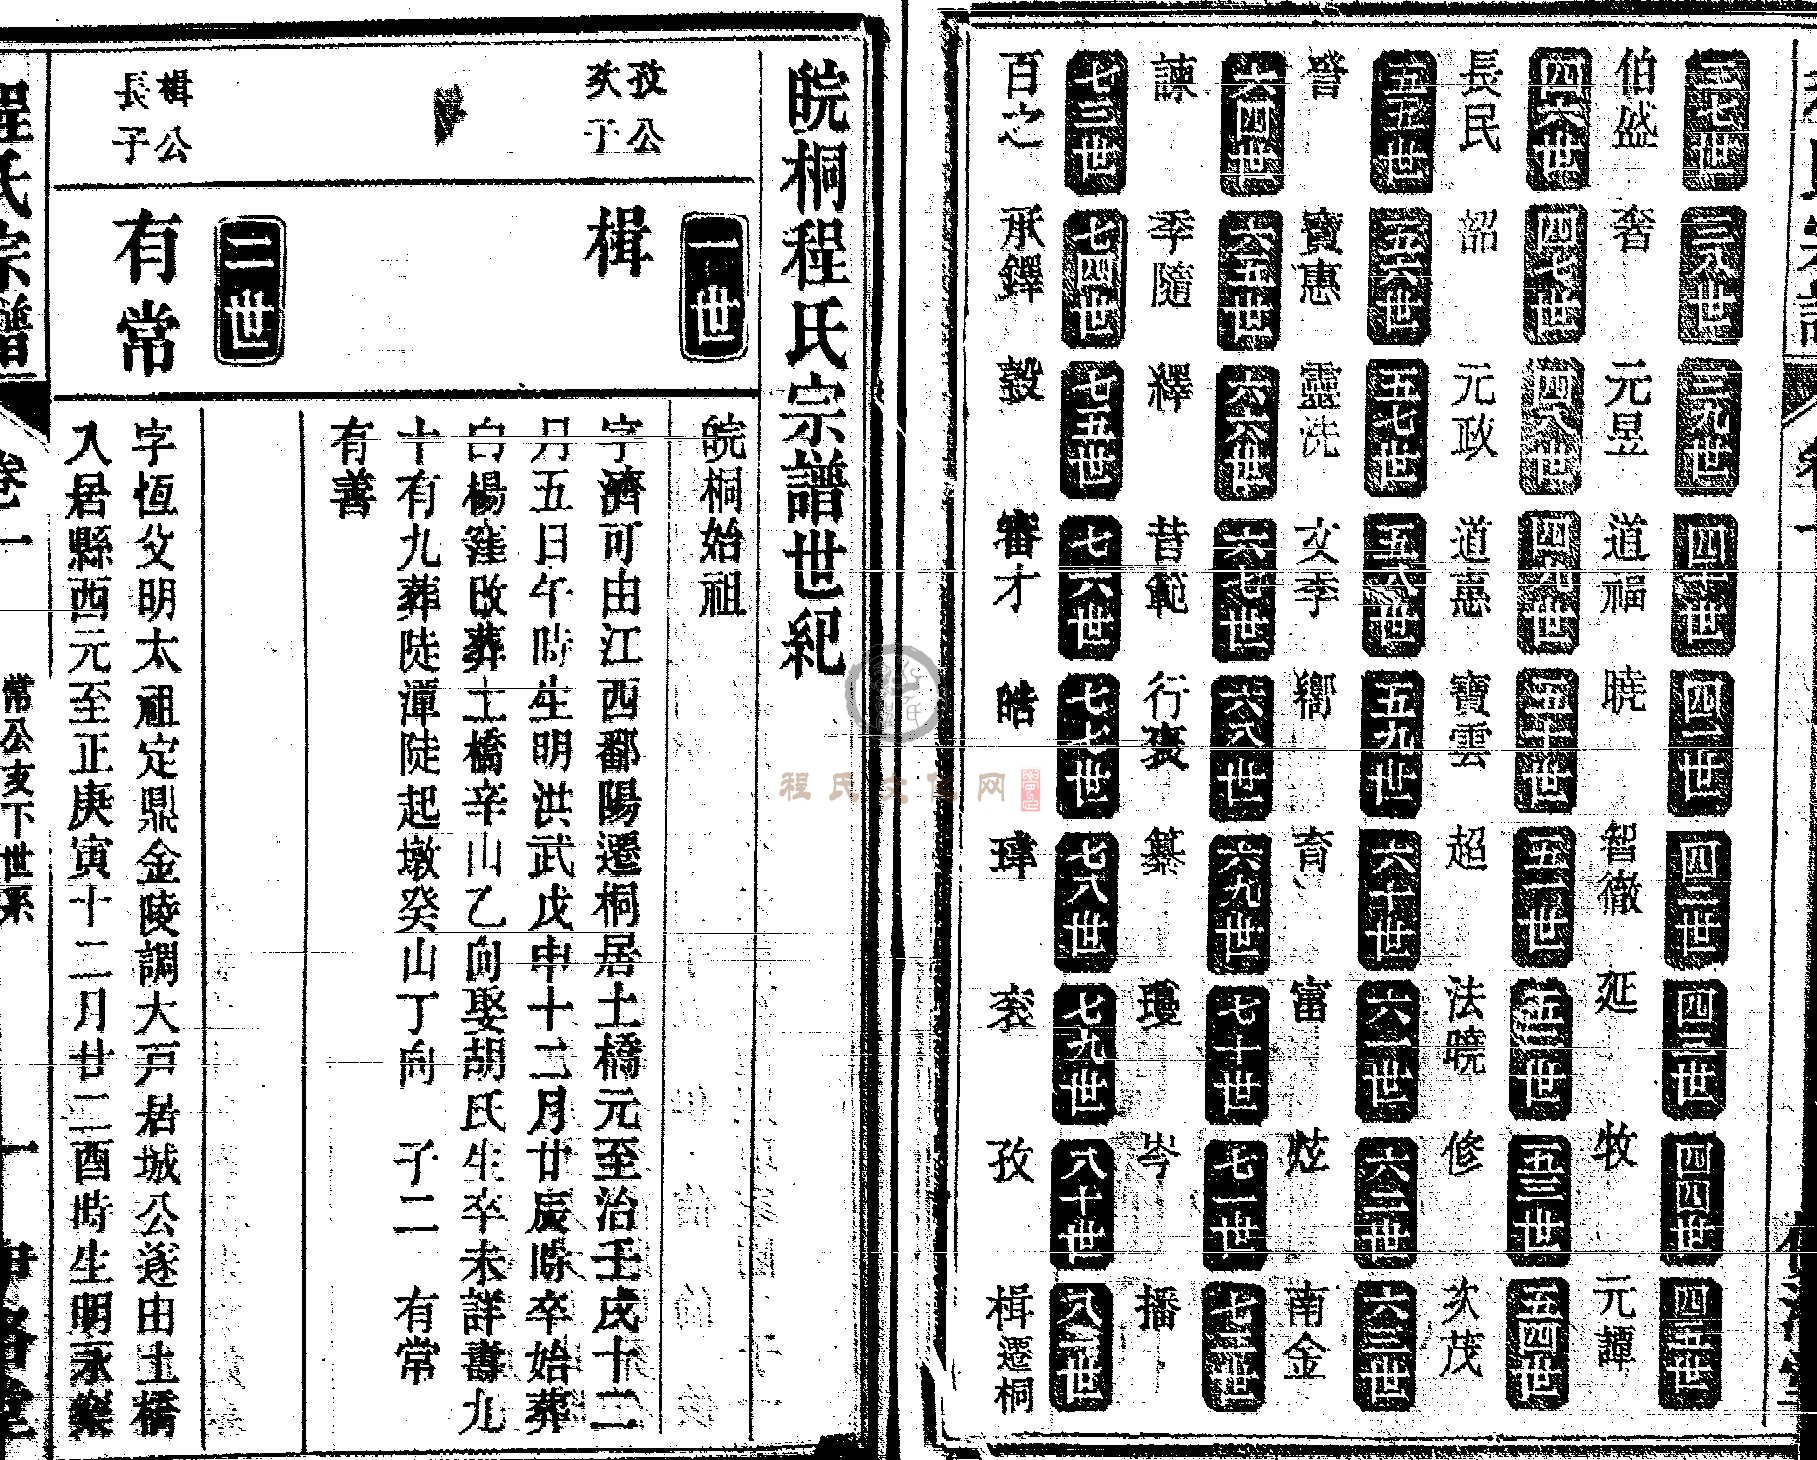 三七世 伯盛
三八世 奢
三九世 元昱
四十世 道福
四一世 曉
四二世 智徹
四三世 延
四四世 牧
四五世 元譚
四六世 長民
四七世 韶
四八世 元政
四九世 道惠
五十世 寶雲
五一世 超
五二世 法曉
五三世 修
五四世 次茂
五五世 詧
五六世 寶惠
五七世 靈洗
五八世 文季
五九世 嚮
六十世 育
六一世 富
六二世 炫
六三世 南金
六四世 諫
六五世 季隨
六六世 繹
六七世 昔範
六八世 行褒
六九世
七十世 瓊
七一世 岑
七二世 播
七三世 百之
七四世 承鐸
七五世
七六世 審才
七七世 皓
七八世 瑋
七九世
八十世 孜
八一世 楫遷桐
皖桐程氏宗譜世紀
一世
孜公
次子
楫
皖桐始祖
字濟可由江西鄱陽遷桐居土橋元至治壬戌十二
月五日午時生明洪武戊申十二月廿辰時卒始葬
白楊窪改葬土橋辛山乙向娶胡氏生卒未詳壽九
十有九葬陡潭陡起墩癸山丁向 子二 有常
有善
二世
楫公
長子
有常
字恆父明太祖定鼎金陵調大戸居城公遂由土橋
入居縣西元至正庚寅十二月廿二酉時生明永樂
程氏宗譜 卷一 常公支下世系 一
程氏文化网